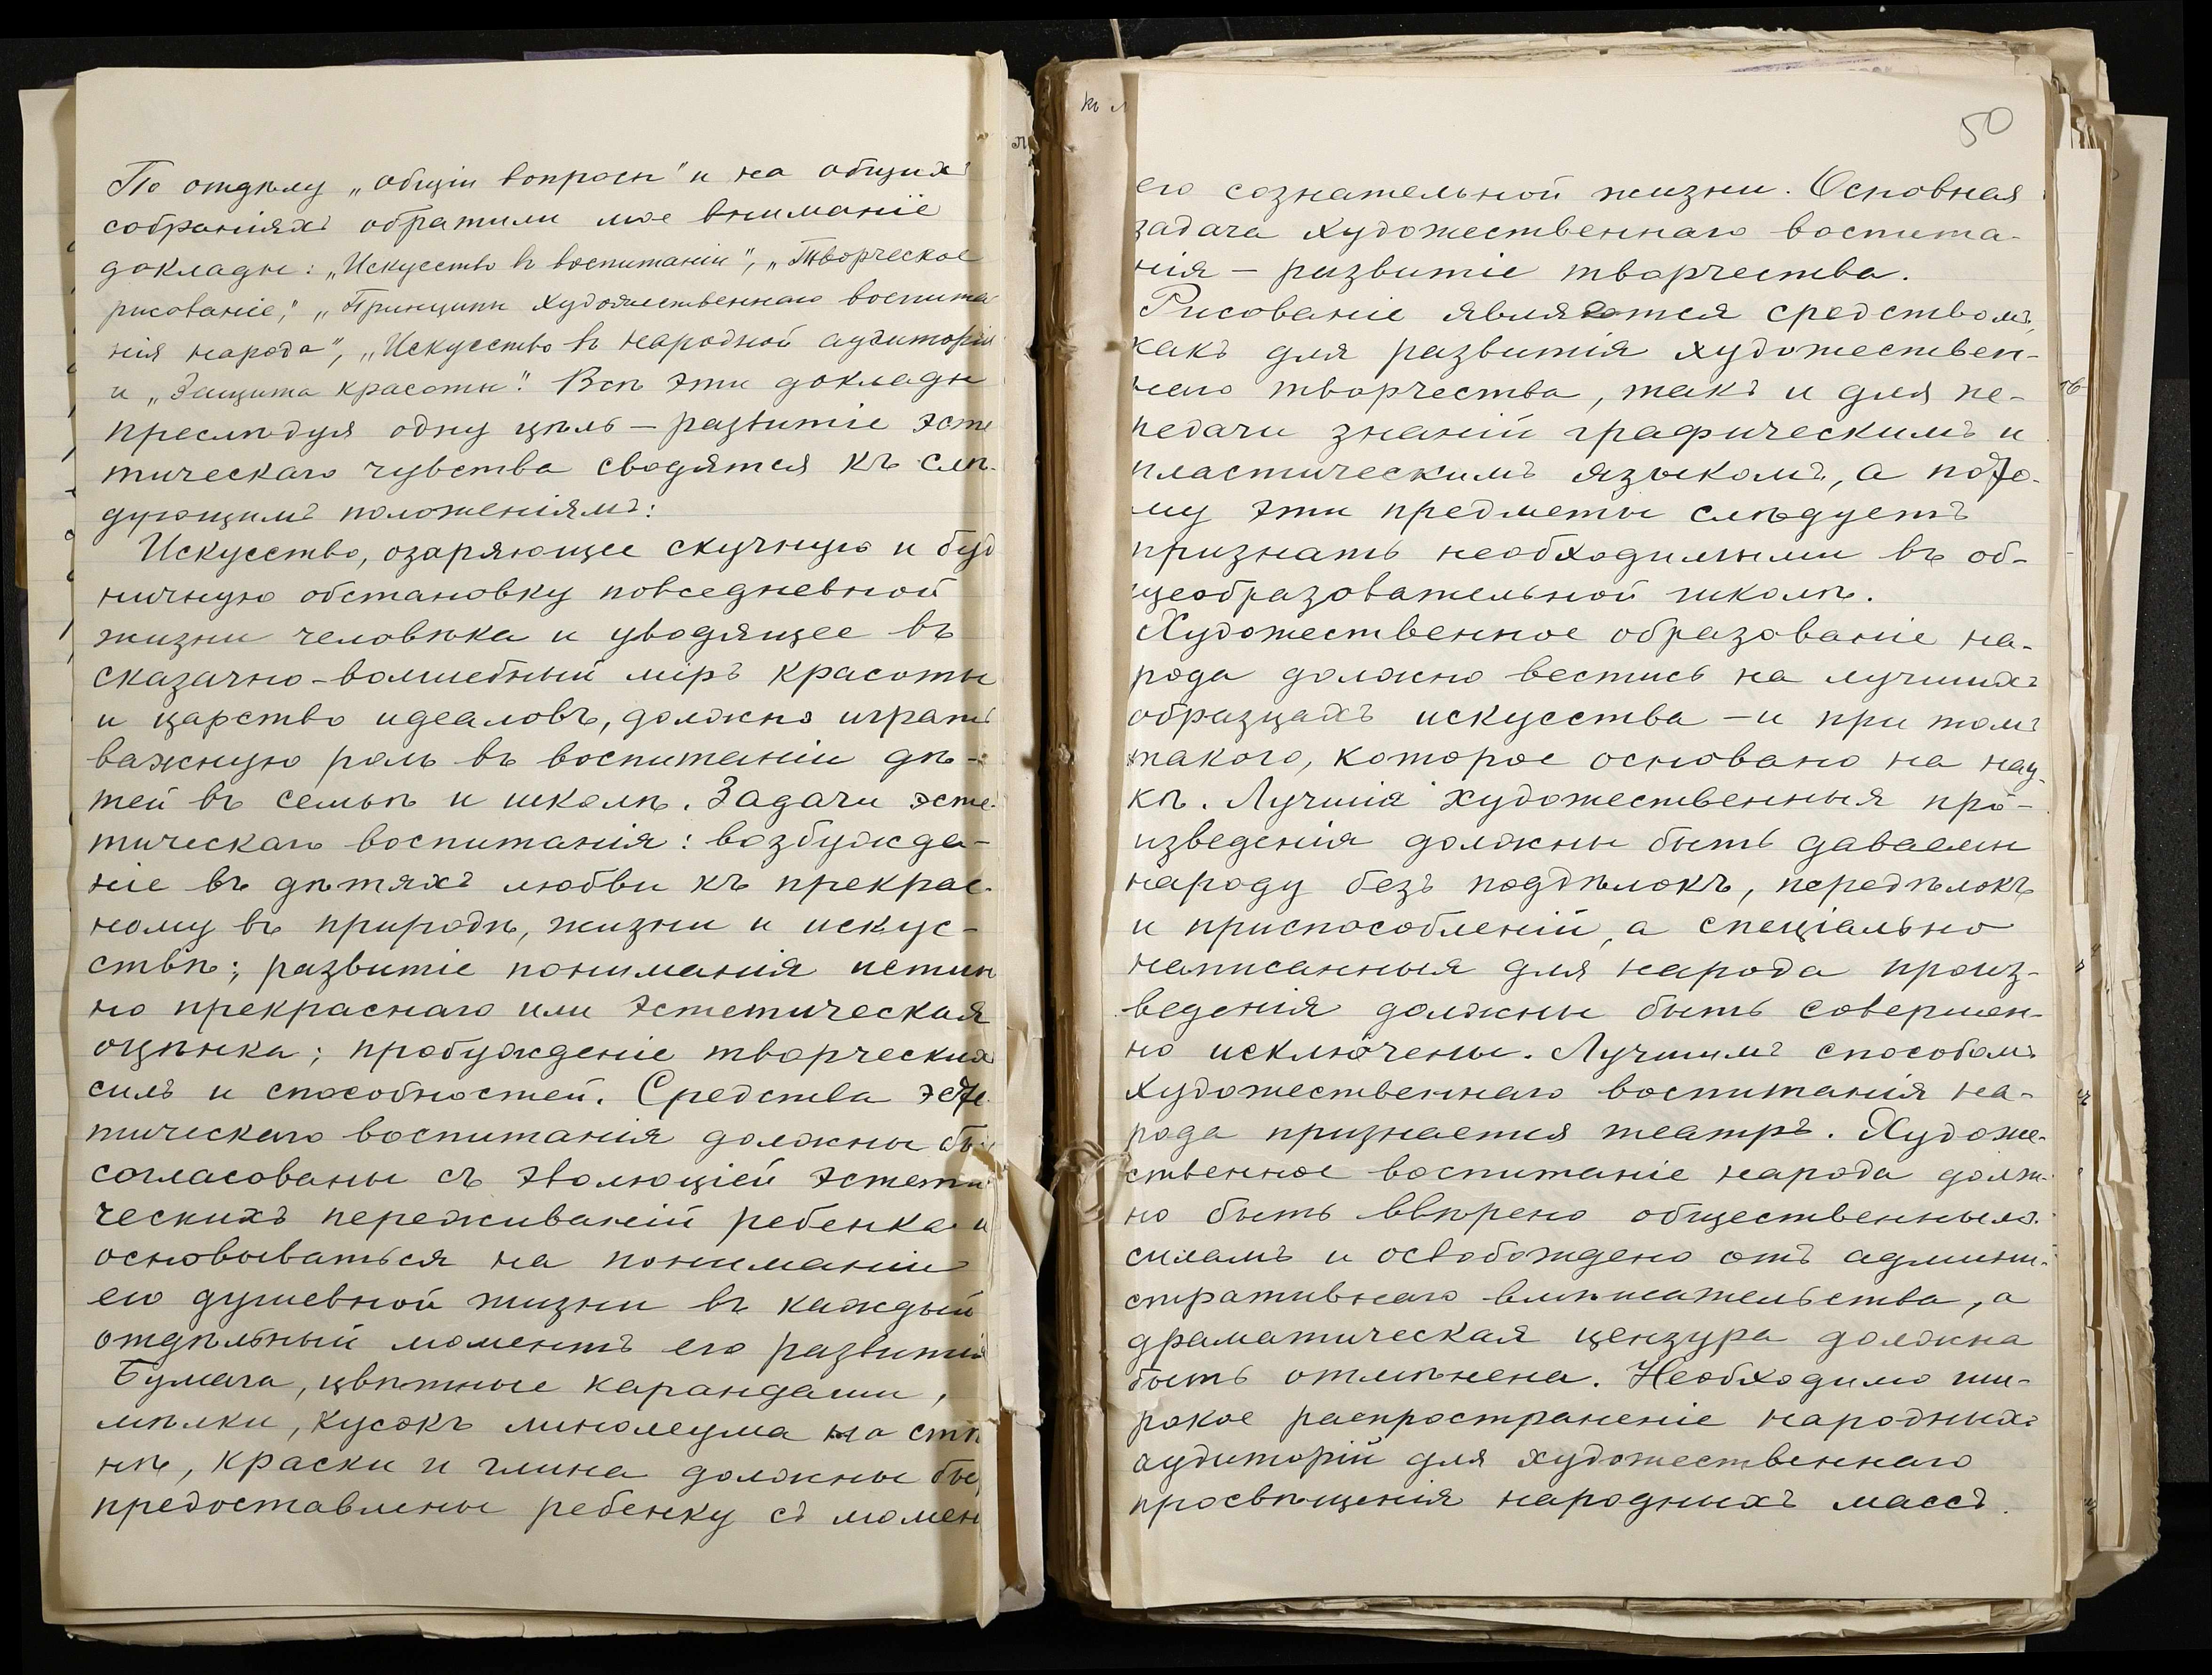 По отдѣлу „общіи вопросы" и на общихъ
собраніяхъ обратили мое вниманіе
доклады: „Искусство въ воспитаніи", „Творческое
рисованіе", „Принципы художественнаго воспита
нія народа", „Искусство въ народной аудиторіи
и „Защита красоты". Всѣ эти доклады
преслѣдуя одну цѣль — развитіе эсте
тическаго чувства сводятся къ слѣ-
дующимъ положеніямъ:
Искусство, озаряющее скучную и буд
ничную обстановку повседневной
жизни человѣка и уводящее въ
сказачно-волшебный міръ красоты
и царство идеаловъ, должно играть
важную роль въ воспитаніи дѣ-
тей въ семьѣ и школѣ. Задачи эсте-
тическаго воспитанія: возбужде-
ніе въ дѣтяхъ любви къ прекрас-
ному въ природѣ, жизни и искус-
ствѣ; развитіе пониманія истин
но прекраснаго или эстетическая
оцѣнка; пробужденіе творческихъ
силъ и способностей. Средства эсте-
тическаго воспитанія должны бы
согласованы съ эволюціей эстети
ческихъ переживаній ребенка и
основываться на пониманіи
его душевной жизни въ каждый
отдѣльный моментъ его развитія
Бумага, цвѣтные карандаши,
мѣлки, кусокъ линолеума на стѣ
нѣ, краски и глина должны бы
предоставлены ребенку съ момен
къ л
50
его сознательной жизни. Основная
задача художественнаго воспита-
нія — развитіе творчества.
Рисованіе является средствомъ,
какъ для развитія художествен-
наго творчества, такъ и для пе-
редачи знаній графическимъ и
пластическимъ языкомъ, а пото-
му эти предметы слѣдуетъ
признать необходимыми въ об-
щеобразовательной школѣ.
Художественное образованіе на-
рода должно вестись на лучшихъ
образцахъ искусства — и при томъ
такого, которое основано на нау-
кѣ. Лучшія художественныя про-
изведенія должны быть даваемы
народу безъ поддѣлокъ, передѣлокъ
и приспособленій, а спеціально
написанныя для народа произ-
веденія должны быть совершен-
но исключены. Лучшимъ способомъ
художественнаго воспитанія на-
рода признается театръ. Художе-
ственное воспитаніе народа долж-
но быть ввѣрено общественнымъ
силамъ и освобождено отъ админи-
стративнаго вмѣшательства, а
драматическая цензура должна
быть отмѣнена. Необходимо ши-
рокое распространеніе народныхъ
аудиторій для художественнаго
просвѣщенія народныхъ массъ.